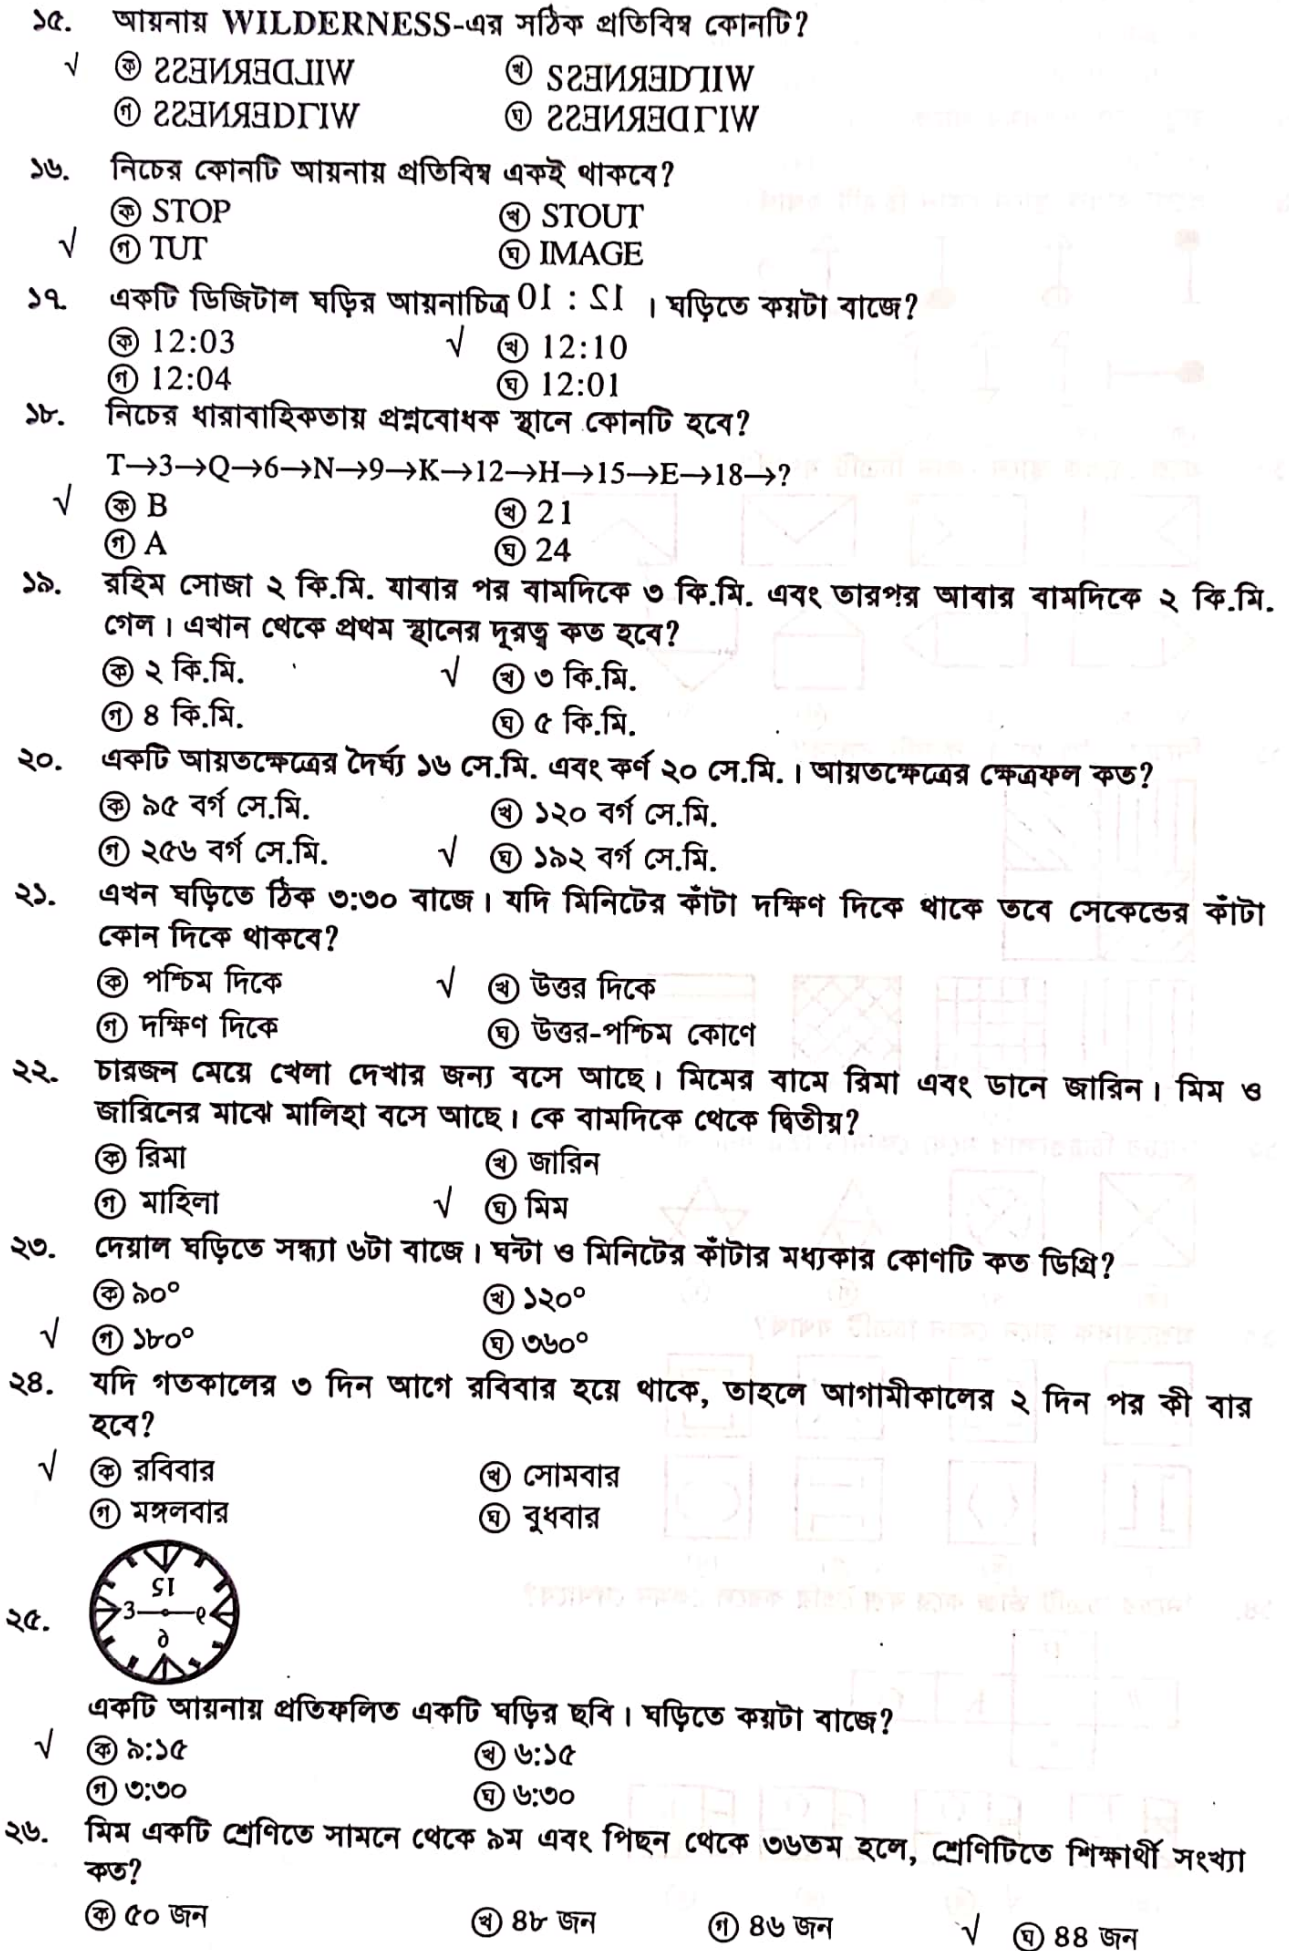 ১৫. আয়নায় WILDERNESS-এর সঠিক প্রতিবিম্ব কোনটি?
√ ক WILDERNESS খ WILDERNESS
গ WILDERNESS ঘ WILDERNESS
১৬. নিচের কোনটি আয়নায় প্রতিবিম্ব একই থাকবে?
ক STOP খ STOUT
√ গ TUT ঘ IMAGE
১৭. একটি ডিজিটাল ঘড়ির আয়নাচিত্র 01 : 21 । ঘড়িতে কয়টা বাজে?
ক 12:03 √ খ 12:10
গ 12:04 ঘ 12:01
১৮. নিচের ধারাবাহিকতায় প্রশ্নবোধক স্থানে কোনটি হবে?
T→3→Q→6→N→9→K→12→H→15→E→18→?
√ ক B খ 21
গ A ঘ 24
১৯. রহিম সোজা ২ কি.মি. যাবার পর বামদিকে ৩ কি.মি. এবং তারপর আবার বামদিকে ২ কি.মি.
গেল। এখান থেকে প্রথম স্থানের দূরত্ব কত হবে?
ক ২ কি.মি. √ খ ৩ কি.মি.
গ ৪ কি.মি. ঘ ৫ কি.মি.
২০. একটি আয়তক্ষেত্রের দৈর্ঘ্য ১৬ সে.মি. এবং কর্ণ ২০ সে.মি.। আয়তক্ষেত্রের ক্ষেত্রফল কত?
ক ৯৫ বর্গ সে.মি. খ ১২০ বর্গ সে.মি.
গ ২৫৬ বর্গ সে.মি. √ ঘ ১৯২ বর্গ সে.মি.
২১. এখন ঘড়িতে ঠিক ৩:৩০ বাজে। যদি মিনিটের কাঁটা দক্ষিণ দিকে থাকে তবে সেকেন্ডের কাঁটা
কোন দিকে থাকবে?
ক পশ্চিম দিকে √ খ উত্তর দিকে
গ দক্ষিণ দিকে ঘ উত্তর-পশ্চিম কোণে
২২. চারজন মেয়ে খেলা দেখার জন্য বসে আছে। মিমের বামে রিমা এবং ডানে জারিন। মিম ও
জারিনের মাঝে মালিহা বসে আছে। কে বামদিকে থেকে দ্বিতীয়?
ক রিমা খ জারিন
গ মাহিলা √ ঘ মিম
২৩. দেয়াল ঘড়িতে সন্ধ্যা ৬টা বাজে। ঘন্টা ও মিনিটের কাঁটার মধ্যকার কোণটি কত ডিগ্রি?
ক ৯০° খ ১২০°
√ গ ১৮০° ঘ ৩৬০°
২৪. যদি গতকালের ৩ দিন আগে রবিবার হয়ে থাকে, তাহলে আগামীকালের ২ দিন পর কী বার
হবে?
√ ক রবিবার খ সোমবার
গ মঙ্গলবার ঘ বুধবার
২৫.
একটি আয়নায় প্রতিফলিত একটি ঘড়ির ছবি। ঘড়িতে কয়টা বাজে?
√ ক ৯:১৫ খ ৬:১৫
গ ৩:৩০ ঘ ৬:৩০
২৬. মিম একটি শ্রেণিতে সামনে থেকে ৯ম এবং পিছন থেকে ৩৬তম হলে, শ্রেণিটিতে শিক্ষার্থী সংখ্যা
কত?
ক ৫০ জন খ ৪৮ জন গ ৪৬ জন √ ঘ ৪৪ জন